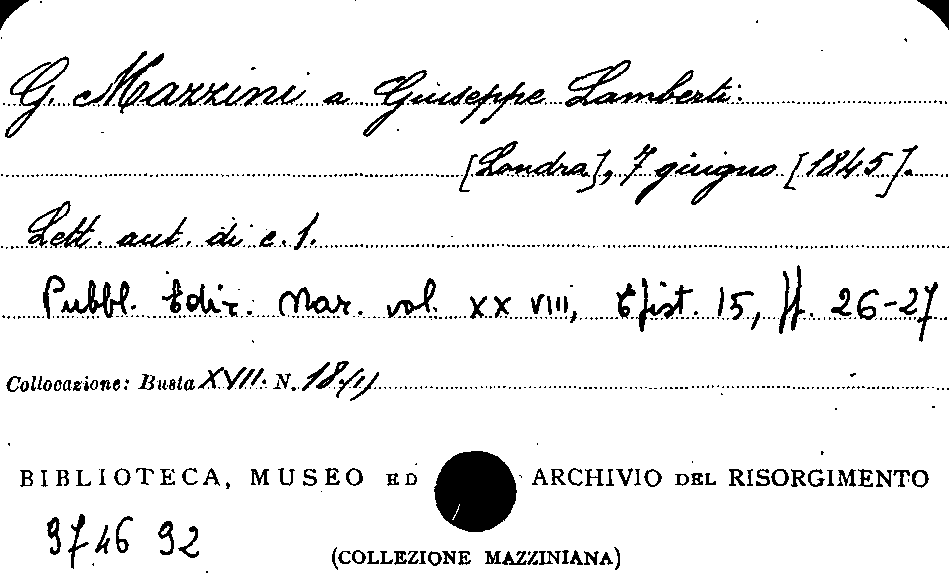 G. Mazzini a Giuseppe Lamberti:
[Londra], 7 giugno [1845].
Lett. aut. di c. 1.
Pubbl. Ediz. Naz. vol. XXVIII, Epist. 15, pp. 26-27
Collocazione: Busta XVII. N. 18/1)
BIBLIOTECA, MUSEO ED ARCHIVIO DEL RISORGIMENTO
9746 92
(COLLEZIONE MAZZINIANA)